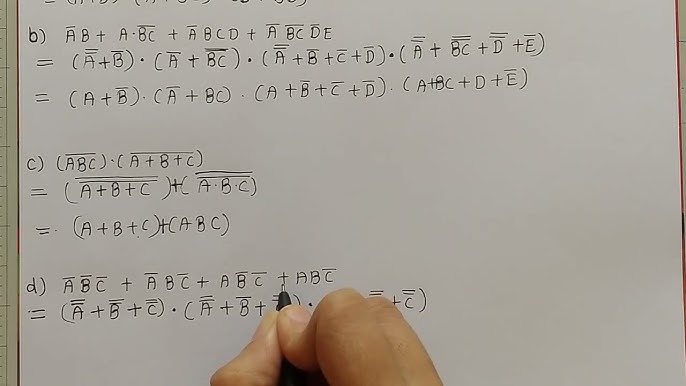 b) A̅B + A·B̅C̅ + A̅BCD + A̅ B̅C̅ D̅E
= (A̿+B̅)·(A̅+B̿C̿)·(A̿+B̅+C̅+D̅)·(A̿+B̿C̿+D̿+E̅)
= (A+B̅)·(A̅+BC)·(A+B̅+C̅+D̅)·(A+BC+D+E̅)
c) (A̅B̅C̅)·(A̅ +̅ B̅ +̅ C̅)
= (A̿ +̿ B̿ +̿ C̿)+(A̿ ·̿ B̿ ·̿ C̿)
= (A+B+C)+(ABC)
d) A̅ B̅ C̅ + A̅ B C̅ + A B̅C̅ + A B C̅
= (A̿+B̿+C̿)·(A̿+B̅+ )· +C̿)